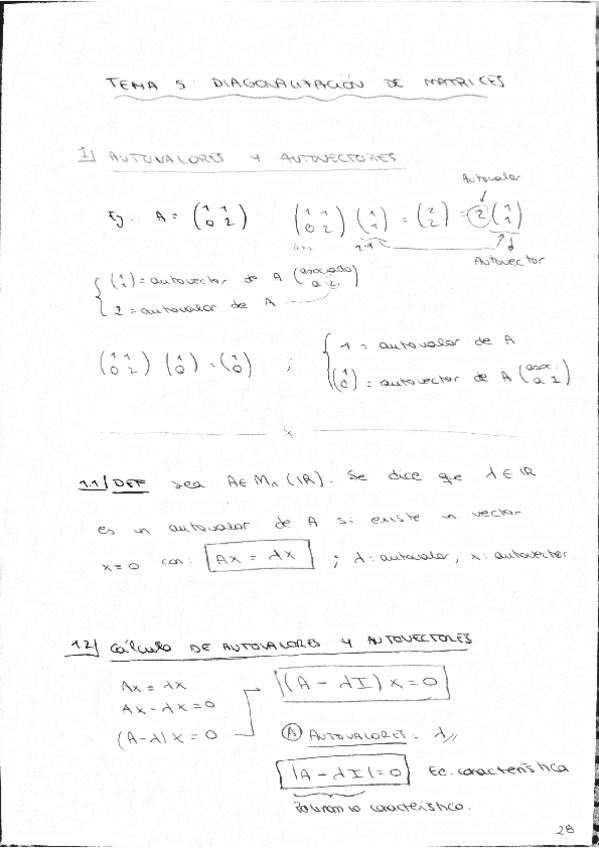 TEMA 5: DIAGONALIZACIÓN DE MATRICES
1) AUTOVALORES Y AUTOVECTORES
Autovalor
Ej. A = (1 1 / 0 2) (1 1 / 0 2) (1 / 1) = (2 / 2) = 2 (1 / 1)
Autovector
(1 / 1) = autovector de A (asociado a 2)
2 = autovalor de A
(1 1 / 0 2) (1 / 0) = (1 / 0) ; 1 = autovalor de A
(1 / 0) = autovector de A (asoc. a 1)
x
1.1) DEF Sea A ∈ Mn (IR). Se dice que λ ∈ IR
es un autovalor de A si existe un vector
x = 0 con: Ax = λx ; λ: autovalor, x: autovector.
1.2) CÁLCULO DE AUTOVALORES Y AUTOVECTORES
Ax = λx
Ax - λx = 0
(A - λ)x = 0
(A - λI) x = 0
(A) AUTOVALORES: λ//
|A - λI| = 0 Ec. característica
Polinomio característico.
28